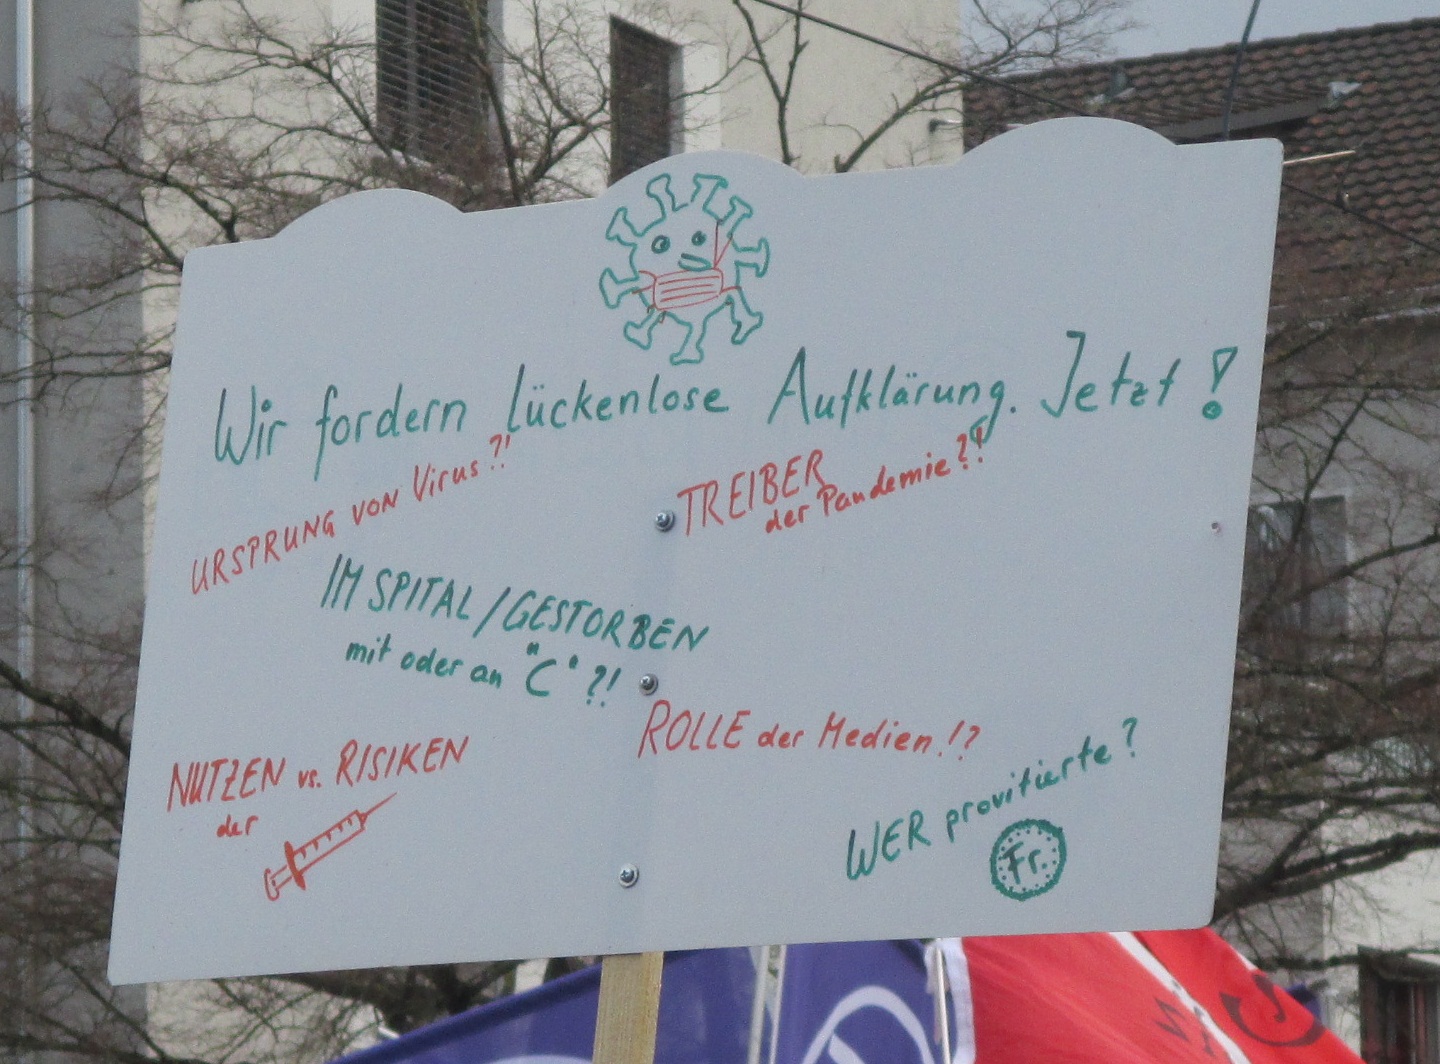 Wir fordern lückenlose Aufklärung. Jetzt!
URSPRUNG VON Virus?!
TREIBER
der Pandemie?!
IM SPITAL/GESTORBEN
mit oder an "C" ?!
ROLLE der Medien!?
NUTZEN vs. RISIKEN
der
WER provitierte?
Fr.